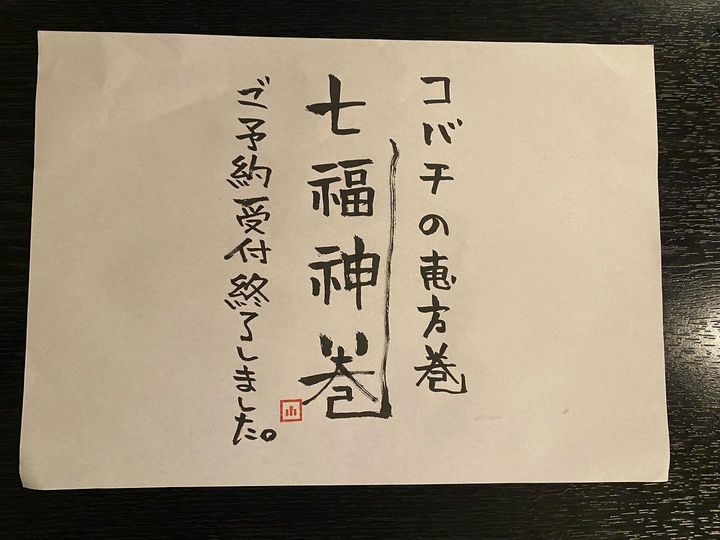 コバチの恵方巻
七福神巻
ご予約受付終了しました。